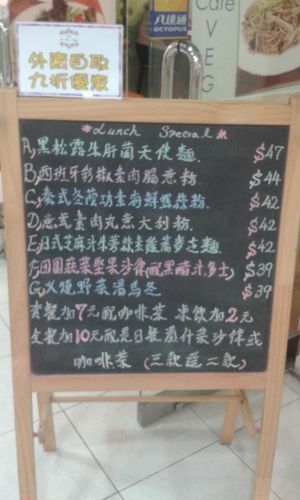 外賣自取
九折優惠
八達通
OCTOPUS
Café
VEG
Lunch Special
A,黑松露牛肝菌天使麵. $47
B,西班牙彩椒素肉腸意粉. $44
C,泰式冬蔭功素海鮮螺絲粉. $42
D,意式素肉丸意大利粉. $42
E,日式芝麻汁 素雞蕎麥麵. $42
F,田園蔬菜堅果沙律(配黑醋汁,多士) $39
G,火焰野菜湯烏冬 $39
套餐加7元配咖啡茶 凍飲加2元
套餐加10元配是日餐湯 沙律或
咖啡茶 (三款選二款)